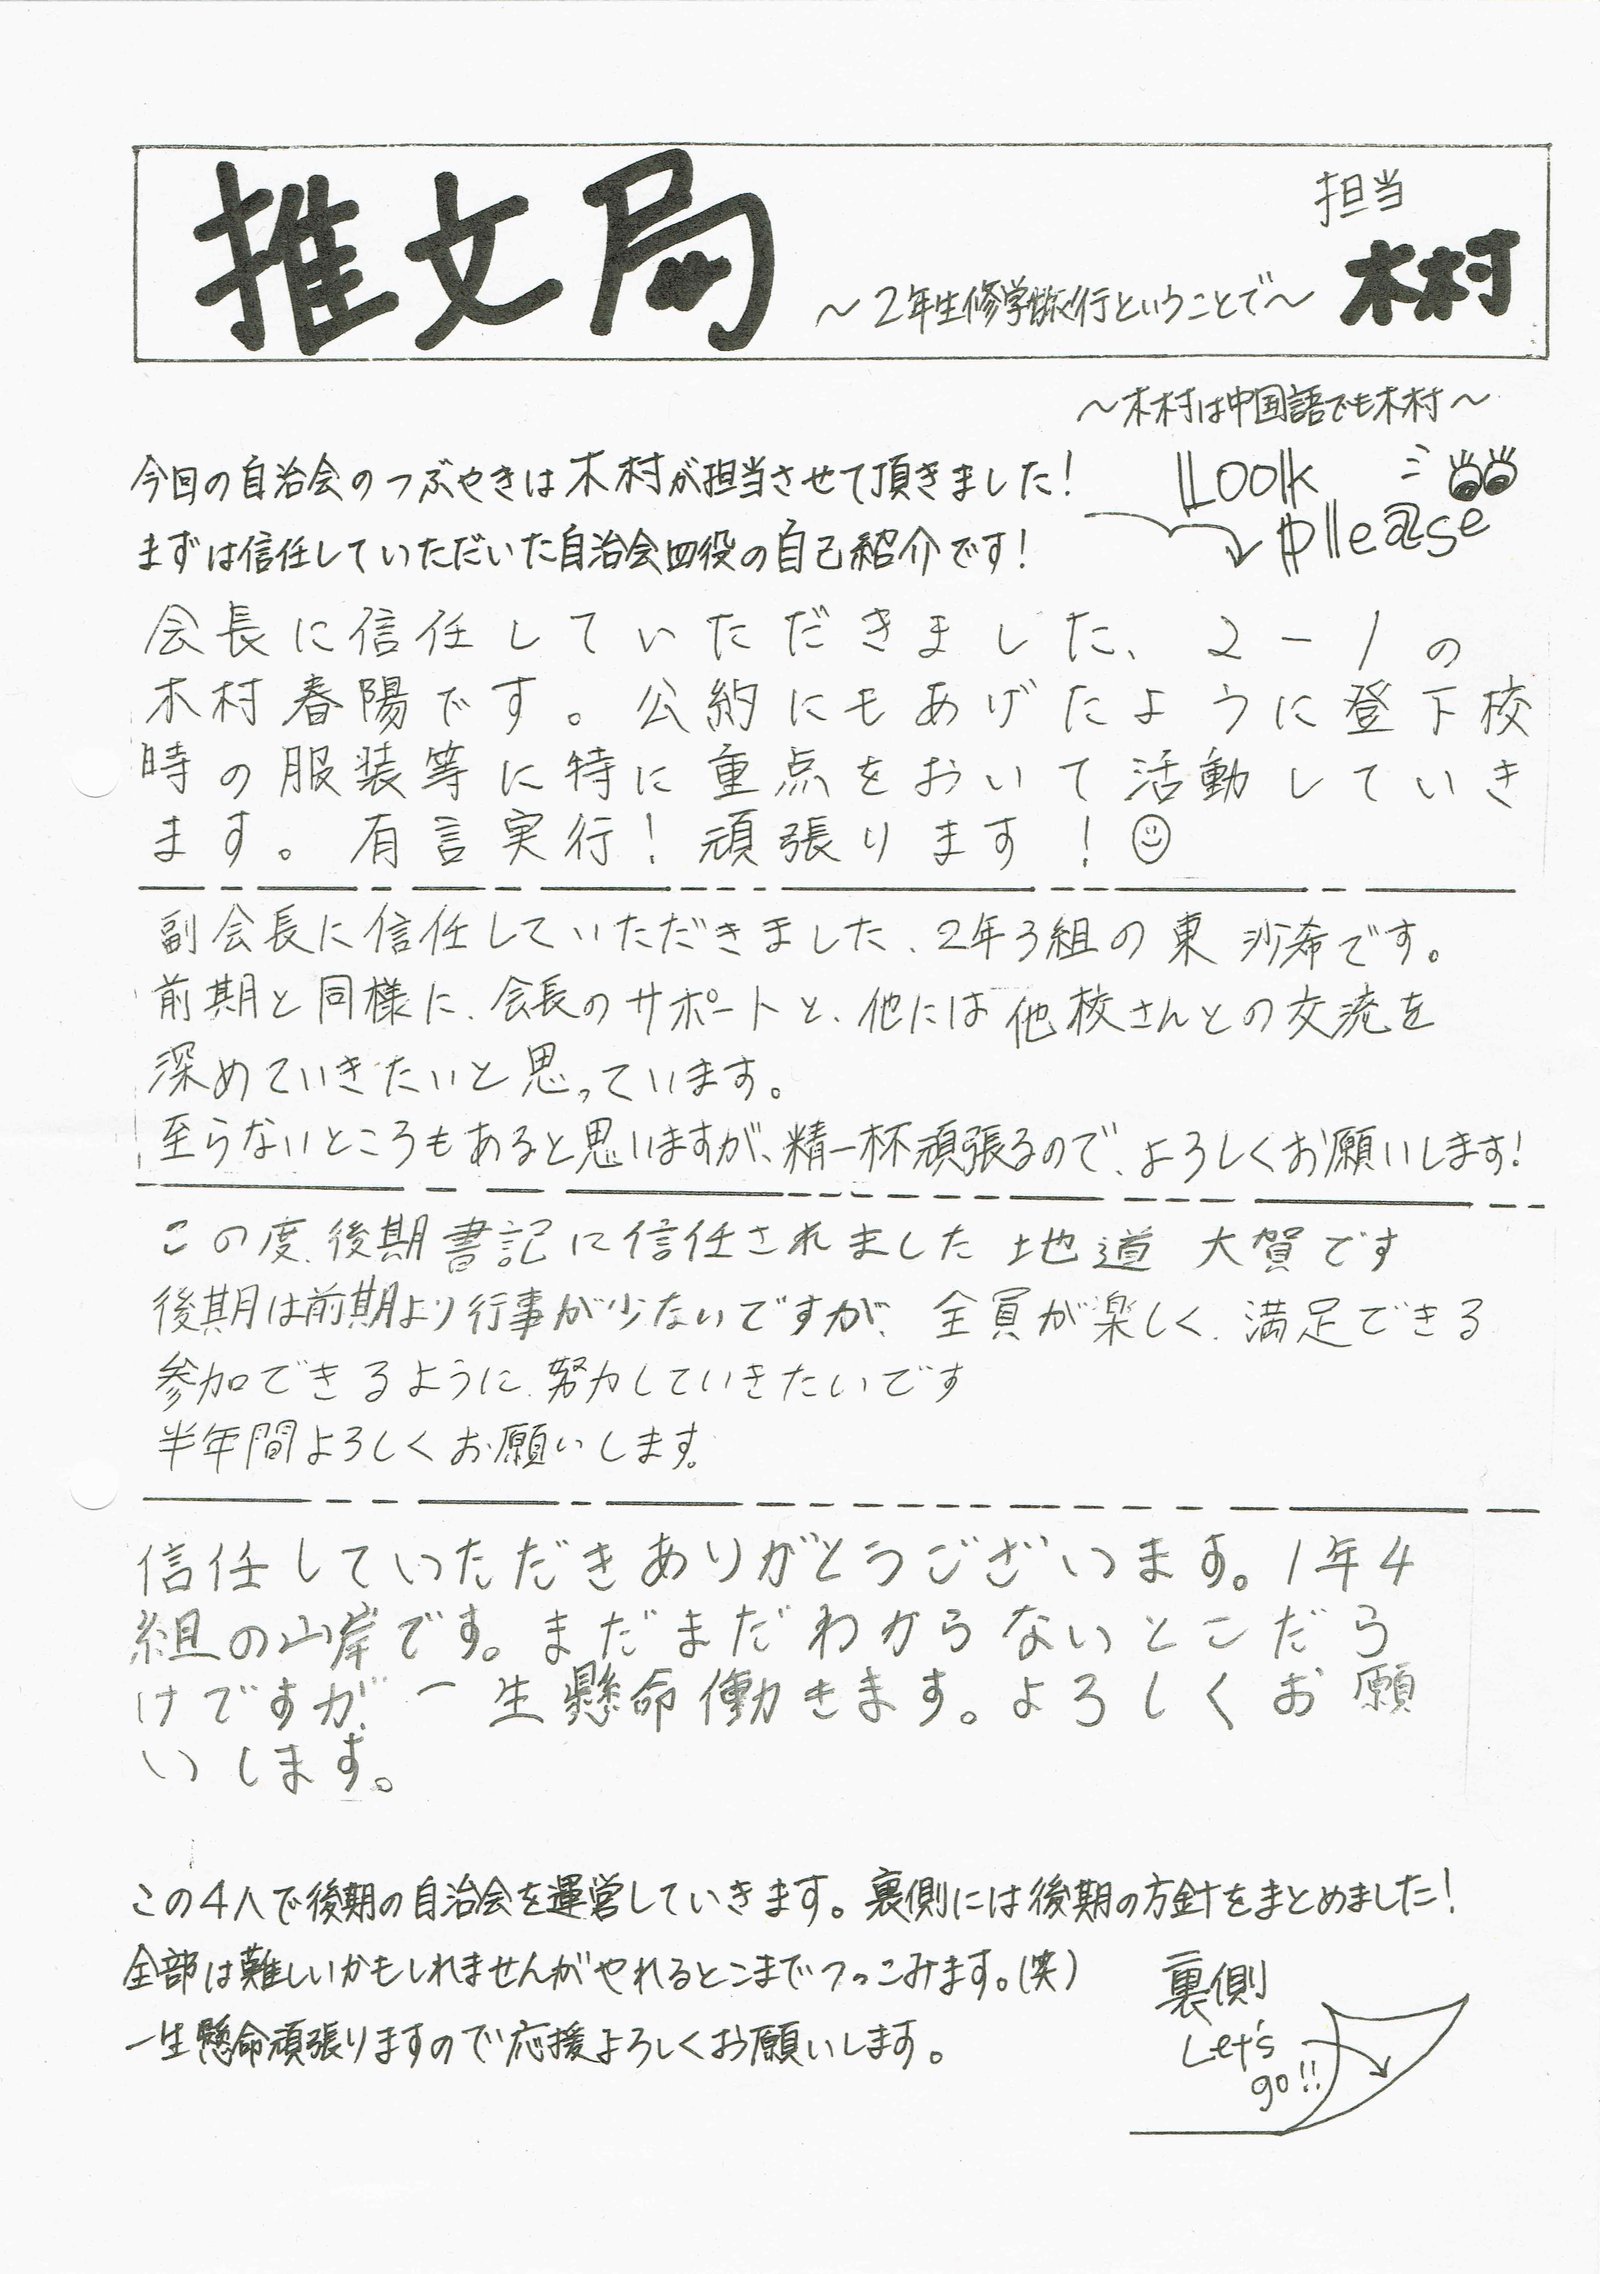 推文局
～2年生修学旅行ということで～
担当
木村
～木村は中国語でも木村～
今回の自治会のつぶやきは木村が担当させて頂きました!
まずは信任していただいた自治会四役の自己紹介です!
Look
please
会長に信任していただきました、2-1の
木村春陽です。公約にもあげたように登下校
時の服装等に特に重点をおいて活動していき
ます。有言実行!頑張ります!
副会長に信任していただきました、2年3組の東 沙希です。
前期と同様に、会長のサポートと、他には他校さんとの交流を
深めていきたいと思っています。
至らないところもあると思いますが、精一杯頑張るので、よろしくお願いします!
この度、後期書記に信任されました 地道 大賀です
後期は前期より行事が少ないですが、全員が楽しく、満足できる
参加できるように、努力していきたいです
半年間よろしくお願いします。
信任していただきありがとうございます。1年4
組の山岸です。まだまだわからないとこだら
けですが、一生懸命働きます。よろしくお願
いします。
この4人で後期の自治会を運営していきます。裏側には後期の方針をまとめました!
全部は難しいかもしれませんがやれるとこまでつっこみます。(笑)
一生懸命頑張りますので応援よろしくお願いします。
裏側
Let's
go!!